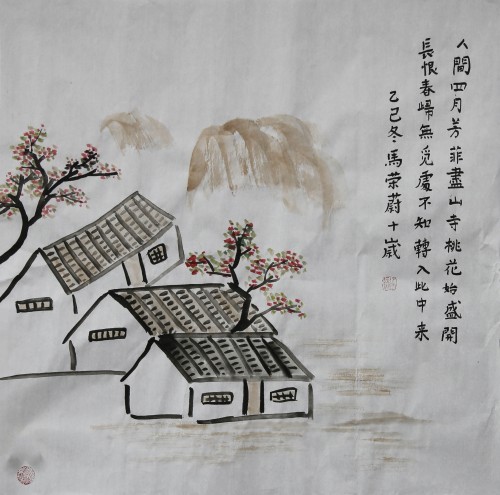 人間四月芳菲盡山寺桃花始盛開
長恨春歸無覓處不知轉入此中来
乙已冬馬荣蔚十歲